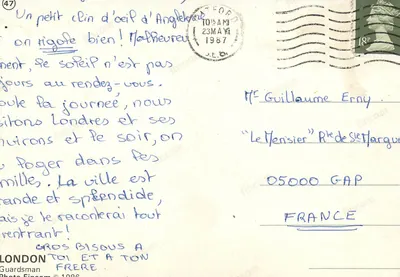 47
Un petit clin d'oeil d'Angleterre
on rigole bien! Malheureu
ment, le soleil n'est pas
jours au rendez-vous.
oute la journée, nous
sitons Londres et ses
nvirons et le soir, on
loger dans les
milles. La ville est
rande et splendide,
ais je te raconterai tout
rentrant!
GROS BISOUS A
TOI ET A TON
FRERE
LONDON
Guardsman
10 15 AM
23 MAY
1987
18
Mr Guillaume Erny
"Le Mensier" Rte de Ste Margue
05000 GAP
FRANCE